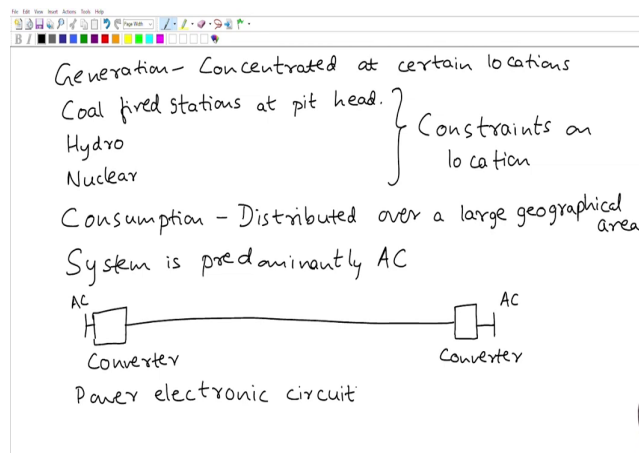 File Edit View Insert Actions Tools Help
Page Width
B I
Generation - Concentrated at certain locations
Coal fired stations at pit head.
Hydro
Nuclear
Constraints on
location
Consumption - Distributed over a large geographical
area
System is predominantly AC
AC
AC
Converter
Converter
Power electronic circuit